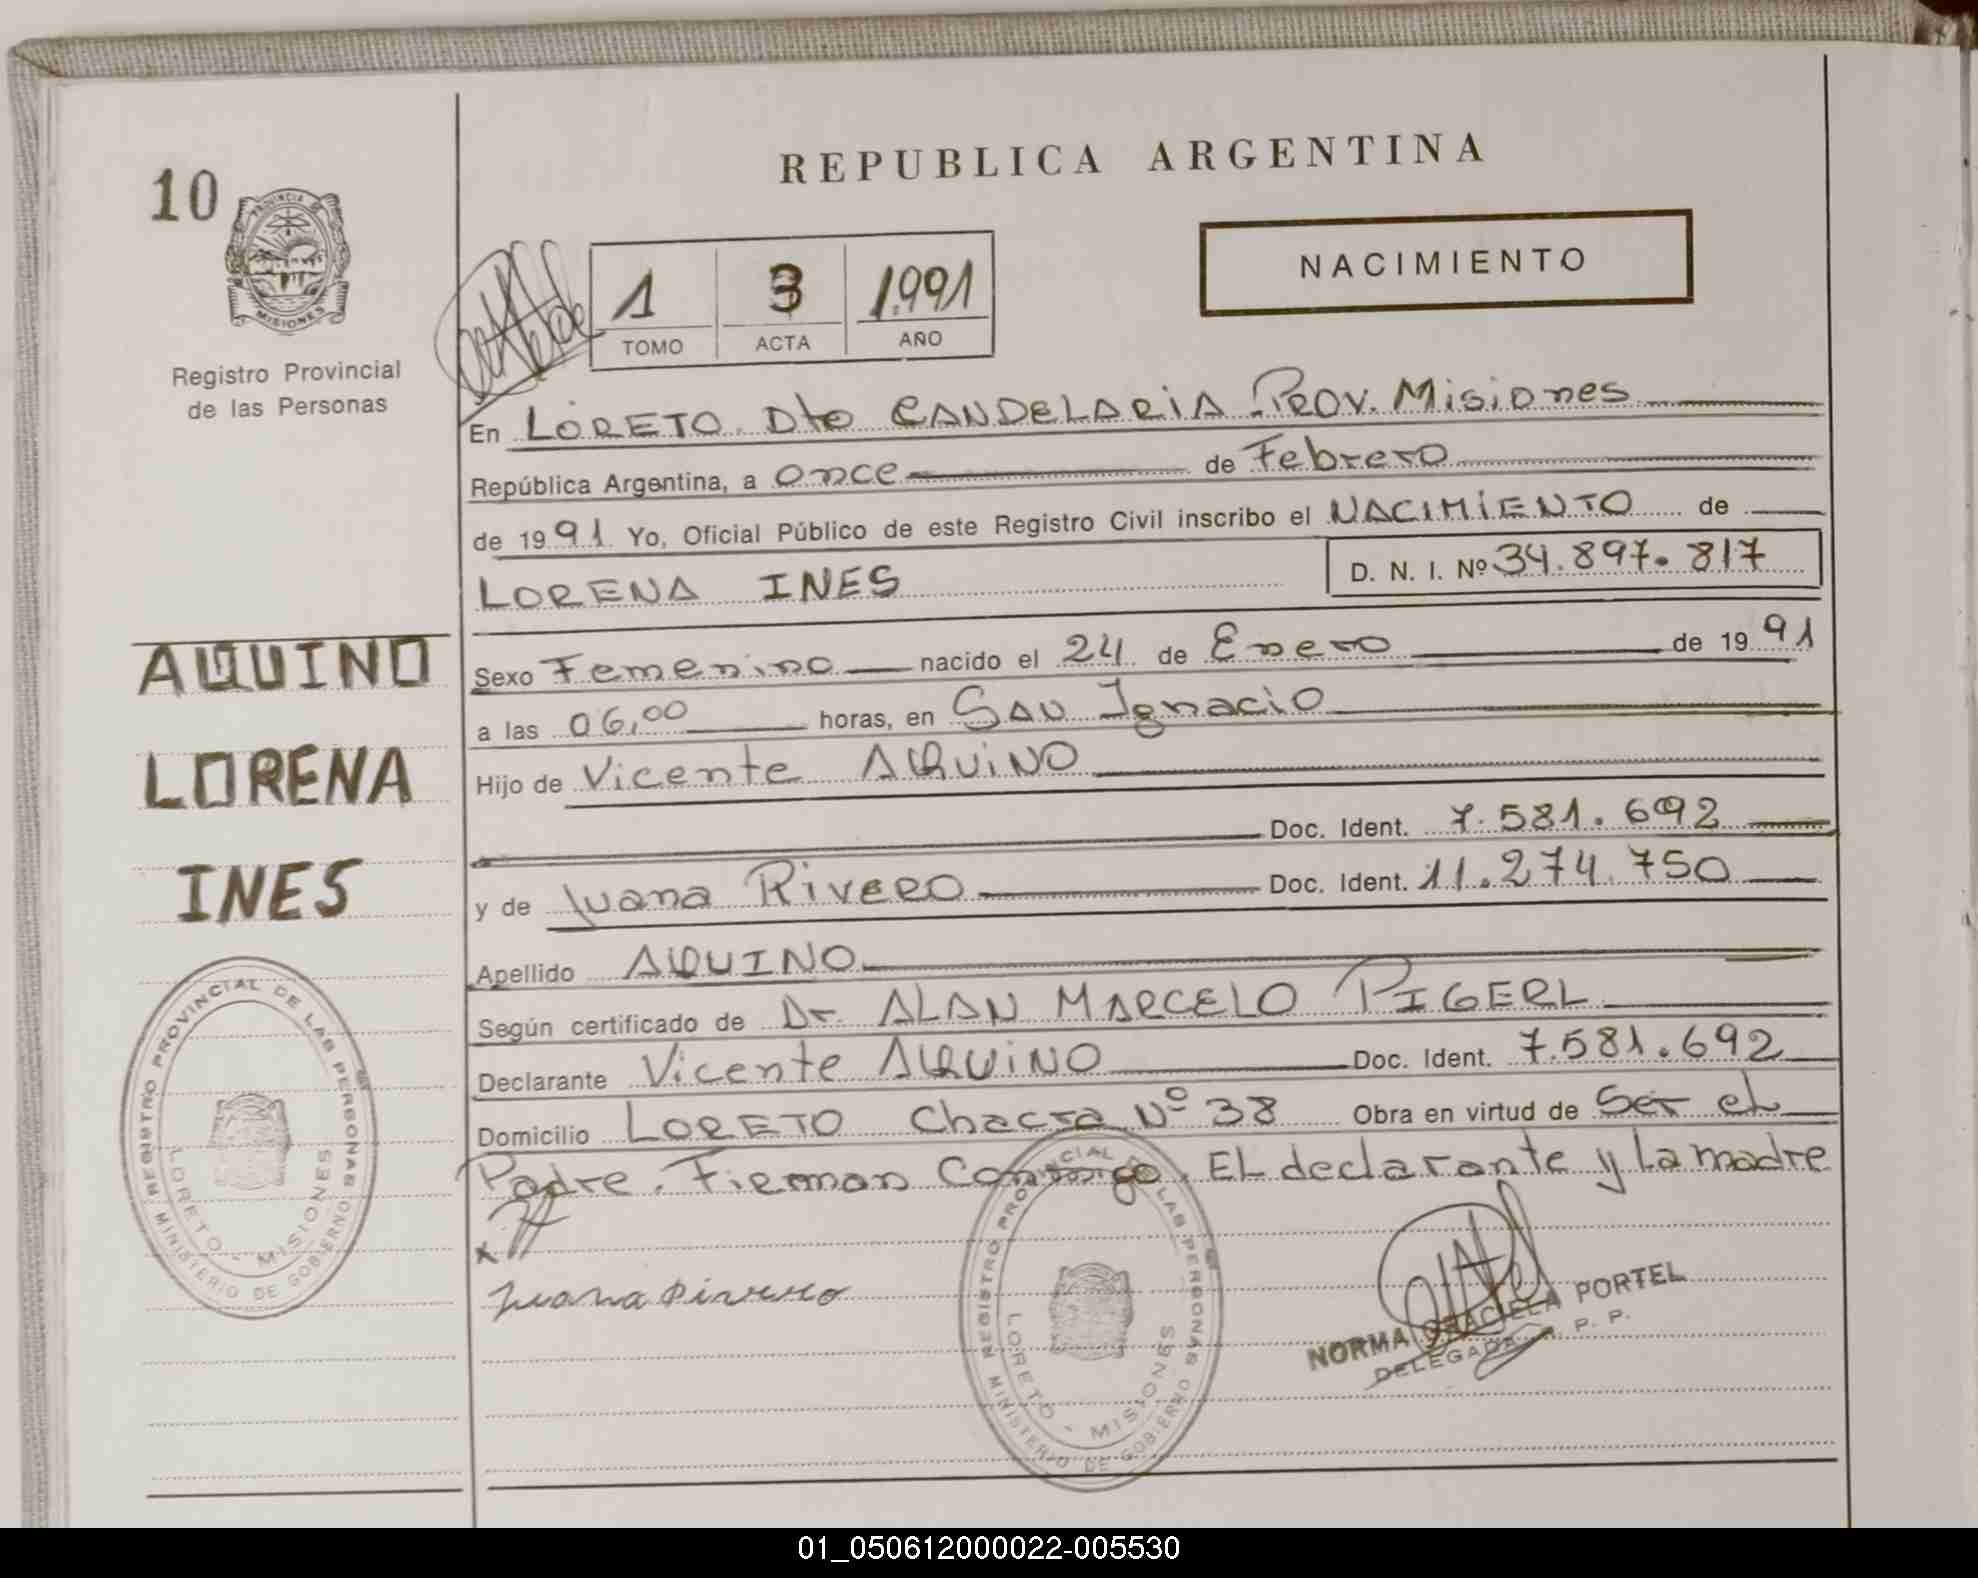 REPUBLICA ARGENTINA
10
PROVINCIA DE
MISIONES
Registro Provincial
de las Personas
NACIMIENTO
1 3 1.991
TOMO ACTA AÑO
En LORETO. Dto CANDELARIA. PROV. Misiones
República Argentina, a once de Febrero
de 1991 Yo, Oficial Público de este Registro Civil inscribo el NACIMIENTO de
LORENA INES D. N. I. Nº 34.897.817
AQUINO
LORENA
INES
Sexo Femenino nacido el 24 de Enero de 1991
a las 06,00 horas, en San Ignacio
Hijo de Vicente AQUINO
Doc. Ident. 7.581.692
y de Juana Rivero Doc. Ident. 11.274.750
Apellido AQUINO
Según certificado de Dr. ALAN MARCELO PIGERL
Declarante Vicente AQUINO Doc. Ident. 7.581.692
Domicilio LORETO Chacra Nº 38 Obra en virtud de Ser el
Padre. Firman Conmigo. El declarante y La madre
x
Juana Rivero
REGISTRO PROVINCIAL DE LAS PERSONAS
MINISTERIO DE GOBIERNO
LORETO - MISIONES
REGISTRO PROVINCIAL DE LAS PERSONAS
MINISTERIO DE GOBIERNO
LORETO - MISIONES
NORMA GRACIELA PORTEL
DELEGADA R. P. P.
01_050612000022-005530